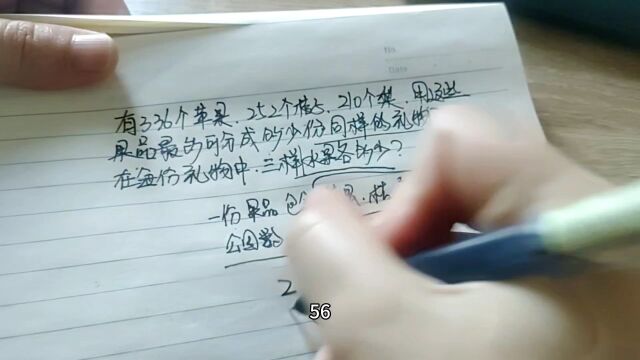 No
Date
有336个苹果、252个桔子、210个梨、用这些
果品最多可分成多少份同样的礼物
在每份礼物中、三样水果各多少?
一份果品
公因数
2
56